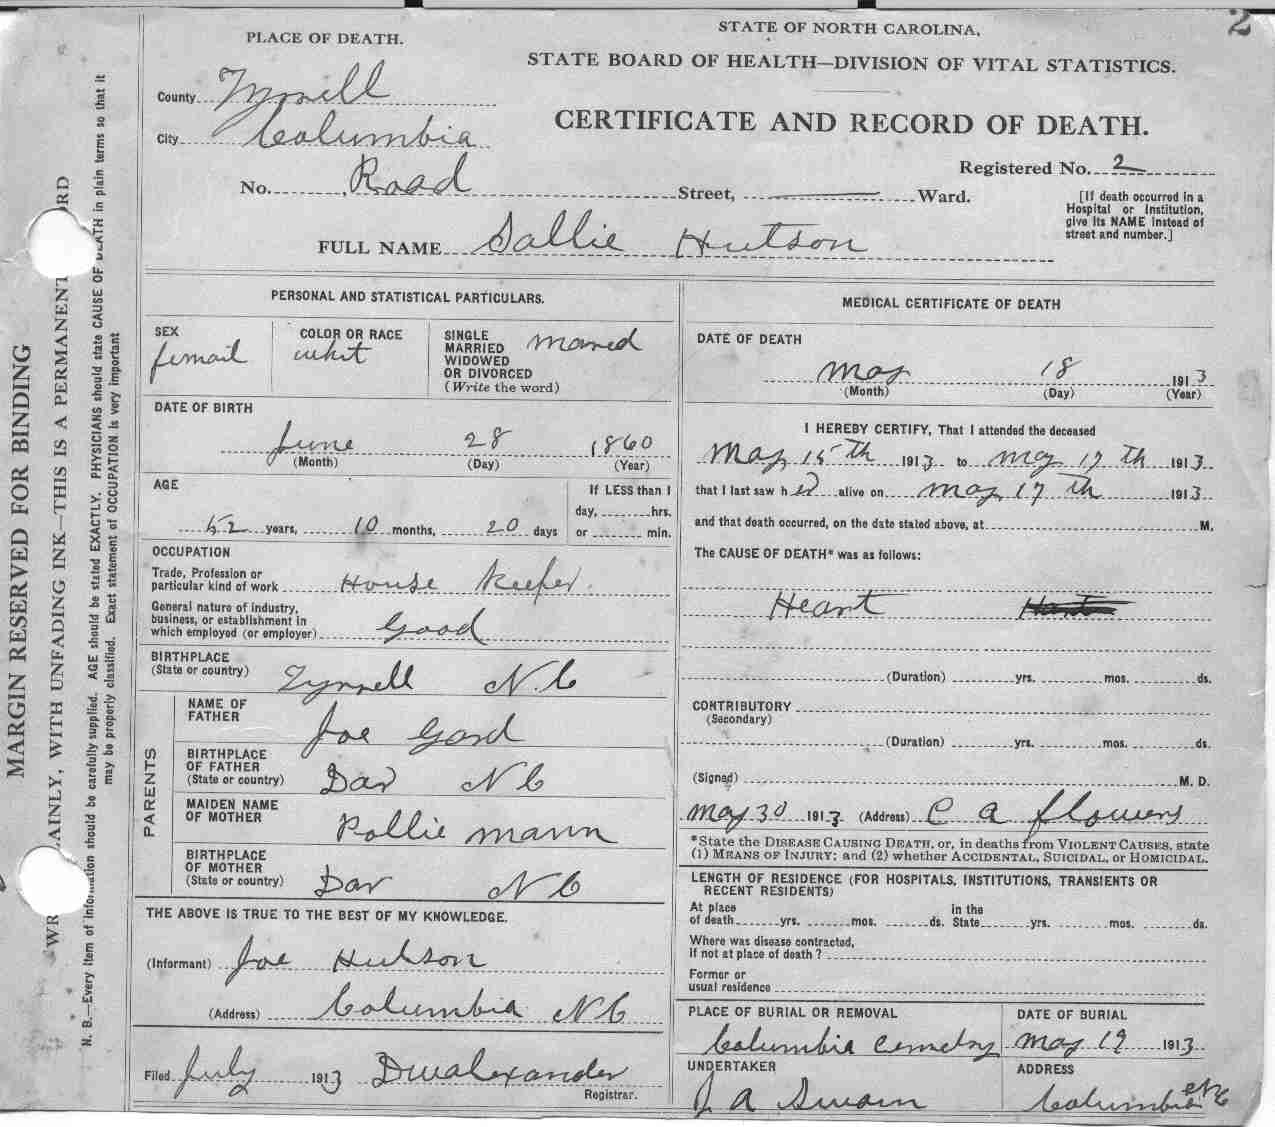 2
STATE OF NORTH CAROLINA,
STATE BOARD OF HEALTH—DIVISION OF VITAL STATISTICS.
CERTIFICATE AND RECORD OF DEATH.
PLACE OF DEATH.
County Tyrrell
City Columbia
Registered No. 2
No. Road Street, Ward.
[If death occurred in a
Hospital or Institution,
give its NAME instead of
street and number.]
FULL NAME Sallie Hutson
MARGIN RESERVED FOR BINDING
AINLY, WITH UNFADING INK—THIS IS A PERMANENT
N. B.—Every item of information should be carefully supplied. AGE should be stated EXACTLY. PHYSICIANS should state CAUSE OF DEATH in plain terms so that it
may be properly classified. Exact statement of OCCUPATION is very important
PERSONAL AND STATISTICAL PARTICULARS.
SEX
femail
COLOR OR RACE
whit
SINGLE
MARRIED
WIDOWED
OR DIVORCED
(Write the word)
mared
DATE OF BIRTH
June 28 1860
(Month) (Day) (Year)
AGE
52 years, 10 months, 20 days
If LESS than 1
day, hrs.
or min.
OCCUPATION
Trade, Profession or
particular kind of work House Keeper.
General nature of industry,
business, or establishment in
which employed (or employer) Good
BIRTHPLACE
(State or country) Tyrrell N.C
PARENTS
NAME OF
FATHER Joe Gard
BIRTHPLACE
OF FATHER
(State or country) Dar N C
MAIDEN NAME
OF MOTHER Pollie mann
BIRTHPLACE
OF MOTHER
(State or country) Dar N C
THE ABOVE IS TRUE TO THE BEST OF MY KNOWLEDGE.
(Informant) Joe Hutson
(Address) Columbia N C
Filed July 1913 Dwalexander
Registrar.
MEDICAL CERTIFICATE OF DEATH
DATE OF DEATH
May 18 1913
(Month) (Day) (Year)
I HEREBY CERTIFY, That I attended the deceased
May 15th 1913 to may 17th 1913
that I last saw her alive on may 17th 1913
and that death occurred, on the date stated above, at M.
The CAUSE OF DEATH* was as follows:
Heart
(Duration) yrs. mos. ds.
CONTRIBUTORY
(Secondary)
(Duration) yrs. mos. ds.
(Signed) M. D.
may 30 1913 (Address) C a flowers
*State the DISEASE CAUSING DEATH, or, in deaths from VIOLENT CAUSES, state
(1) MEANS OF INJURY; and (2) whether ACCIDENTAL, SUICIDAL, or HOMICIDAL.
LENGTH OF RESIDENCE (FOR HOSPITALS, INSTITUTIONS, TRANSIENTS OR
RECENT RESIDENTS)
At place in the
of death yrs. mos. ds. State yrs. mos. ds.
Where was disease contracted,
if not at place of death?
Former or
usual residence
PLACE OF BURIAL OR REMOVAL
Columbia cemetry
DATE OF BURIAL
may 19 1913
UNDERTAKER
J A Swain
ADDRESS
Columbia NC